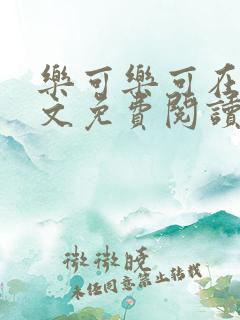 樂可樂可在
文免費閱讀
微微曉
未經同意禁止轉載